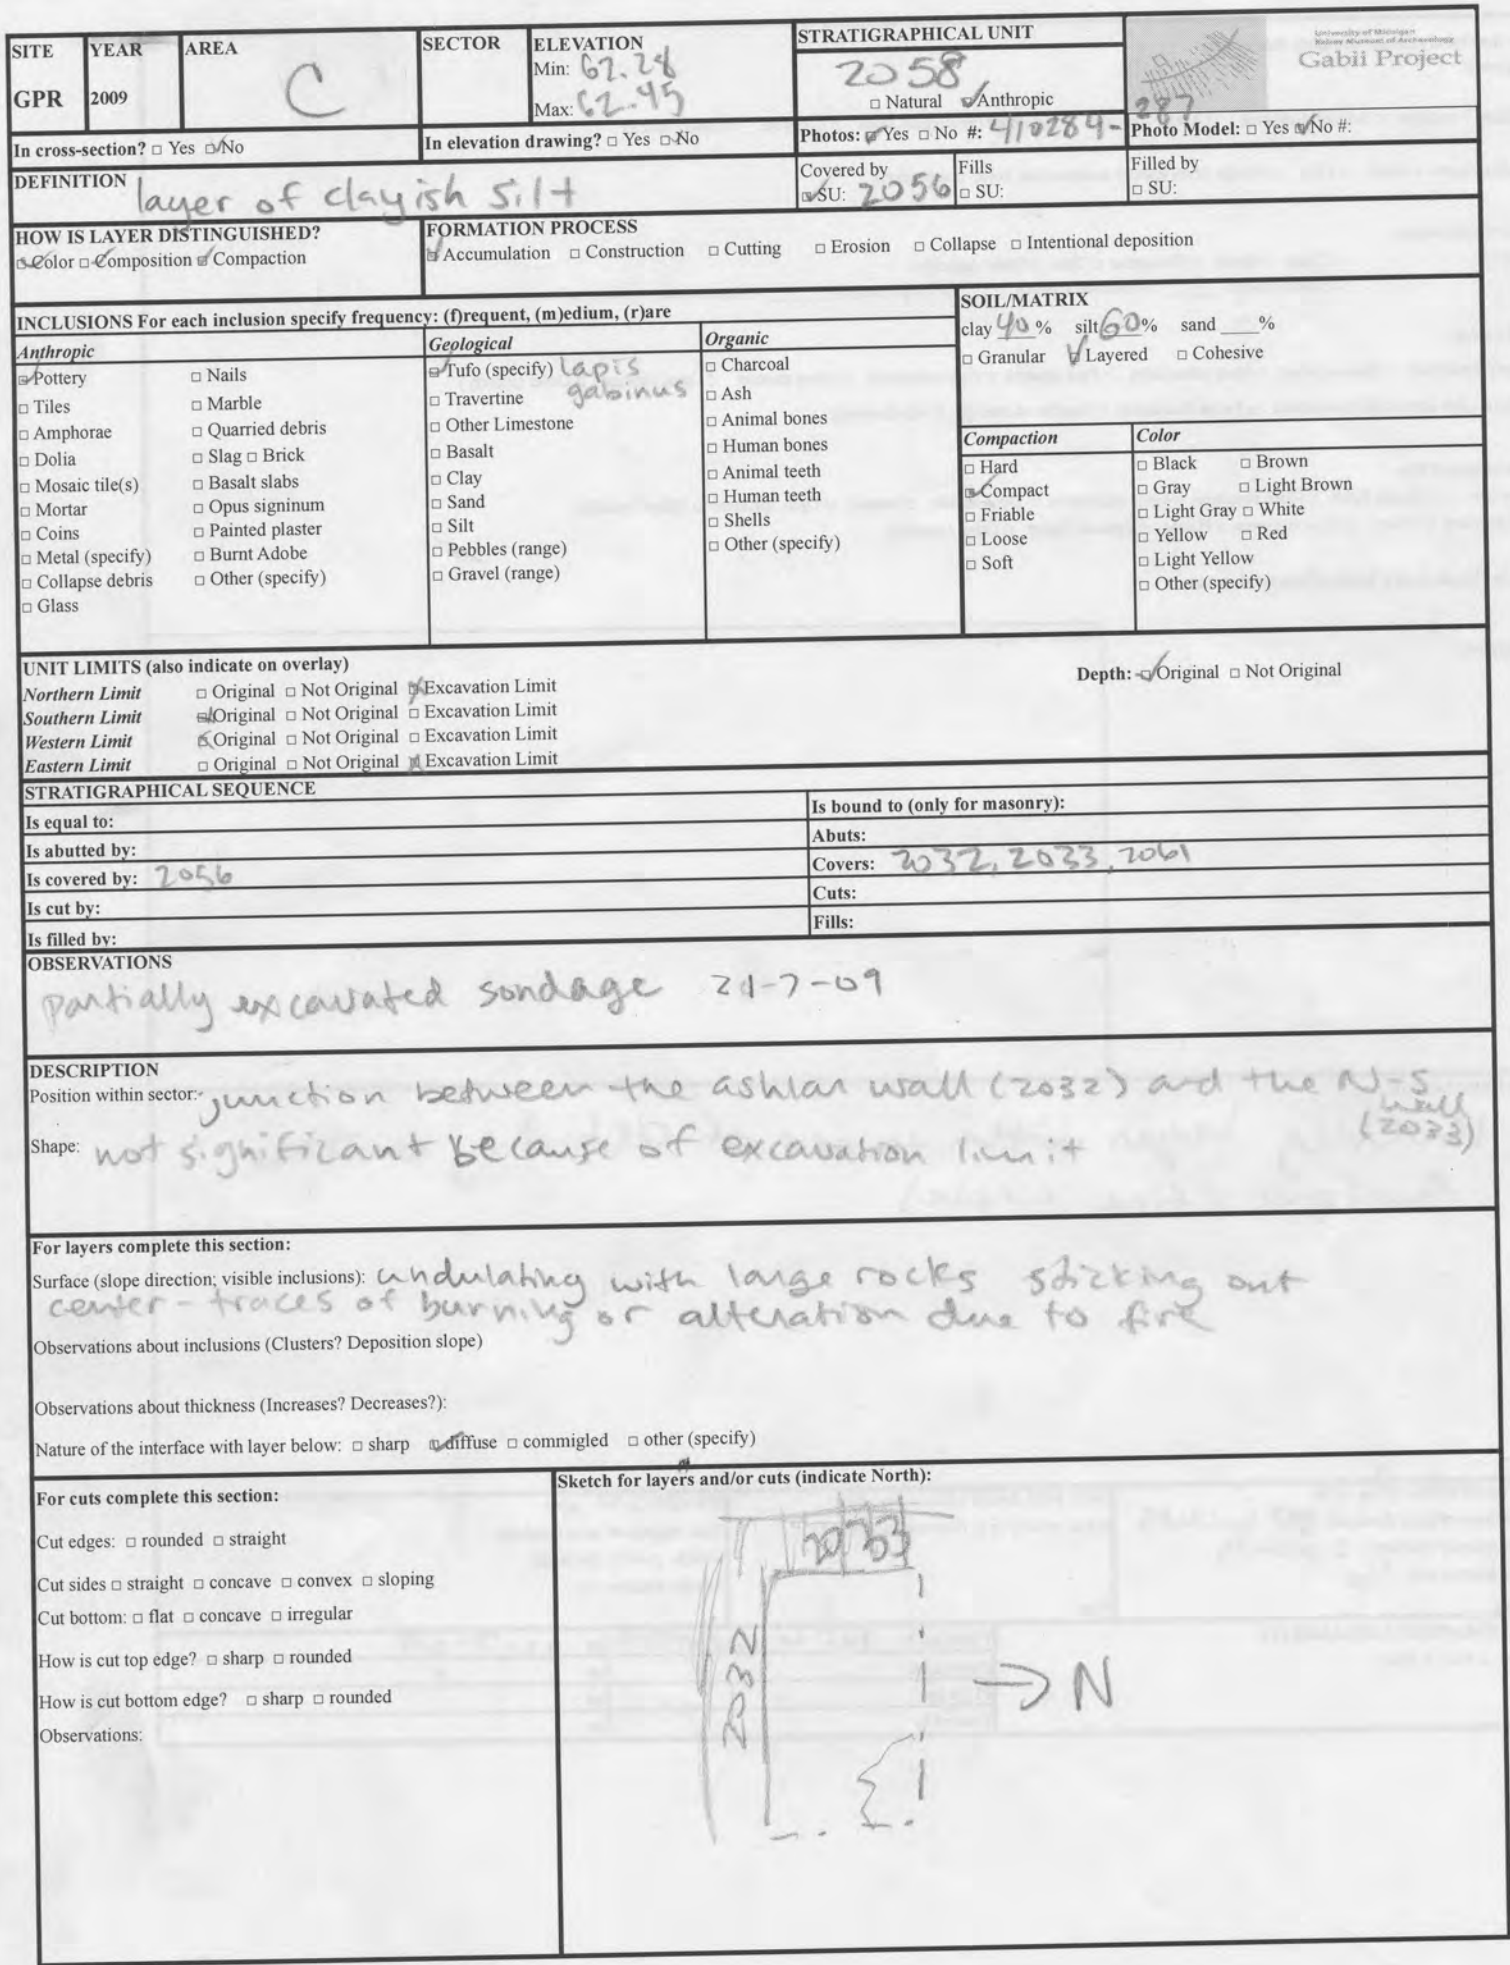 SITE YEAR AREA SECTOR ELEVATION STRATIGRAPHICAL UNIT
University of Michigan
Kelsey Museum of Archaeology
Gabii Project
GPR 2009 C
Min: 62.28
Max: 62.45
2058
□ Natural ☑ Anthropic
In cross-section? □ Yes ☑ No
In elevation drawing? □ Yes ☑ No
Photos: ☑ Yes □ No #: 410284-287
Photo Model: □ Yes ☑ No #:
DEFINITION layer of clayish silt
Covered by
☑ SU: 2056
Fills
□ SU:
Filled by
□ SU:
HOW IS LAYER DISTINGUISHED?
☑ Color ☑ Composition ☑ Compaction
FORMATION PROCESS
☑ Accumulation □ Construction □ Cutting □ Erosion □ Collapse □ Intentional deposition
INCLUSIONS For each inclusion specify frequency: (f)requent, (m)edium, (r)are
Anthropic
☑ Pottery
□ Tiles
□ Amphorae
□ Dolia
□ Mosaic tile(s)
□ Mortar
□ Coins
□ Metal (specify)
□ Collapse debris
□ Glass
□ Nails
□ Marble
□ Quarried debris
□ Slag □ Brick
□ Basalt slabs
□ Opus signinum
□ Painted plaster
□ Burnt Adobe
□ Other (specify)
Geological
☑ Tufo (specify) lapis
gabinus
□ Travertine
□ Other Limestone
□ Basalt
□ Clay
□ Sand
□ Silt
□ Pebbles (range)
□ Gravel (range)
Organic
□ Charcoal
□ Ash
□ Animal bones
□ Human bones
□ Animal teeth
□ Human teeth
□ Shells
□ Other (specify)
SOIL/MATRIX
clay 40 % silt 60 % sand ____%
□ Granular ☑ Layered □ Cohesive
Compaction
□ Hard
☑ Compact
□ Friable
□ Loose
□ Soft
Color
□ Black □ Brown
□ Gray □ Light Brown
□ Light Gray □ White
□ Yellow □ Red
□ Light Yellow
□ Other (specify)
UNIT LIMITS (also indicate on overlay)
Northern Limit □ Original □ Not Original ☑ Excavation Limit
Southern Limit ☑ Original □ Not Original □ Excavation Limit
Western Limit ☑ Original □ Not Original □ Excavation Limit
Eastern Limit □ Original □ Not Original ☑ Excavation Limit
Depth: ☑ Original □ Not Original
STRATIGRAPHICAL SEQUENCE
Is equal to:
Is bound to (only for masonry):
Is abutted by:
Abuts:
Is covered by: 2056
Covers: 2032, 2033, 2061
Is cut by:
Cuts:
Is filled by:
Fills:
OBSERVATIONS
partially excavated sondage 21-7-09
DESCRIPTION
Position within sector: junction between the ashlar wall (2032) and the N-S
wall
(2033)
Shape: not significant because of excavation limit
For layers complete this section:
Surface (slope direction; visible inclusions): undulating with large rocks sticking out
center - traces of burning or alteration due to fire
Observations about inclusions (Clusters? Deposition slope)
Observations about thickness (Increases? Decreases?):
Nature of the interface with layer below: □ sharp ☑ diffuse □ commigled □ other (specify)
For cuts complete this section:
Cut edges: □ rounded □ straight
Cut sides □ straight □ concave □ convex □ sloping
Cut bottom: □ flat □ concave □ irregular
How is cut top edge? □ sharp □ rounded
How is cut bottom edge? □ sharp □ rounded
Observations:
Sketch for layers and/or cuts (indicate North):
2033
2032
→ N